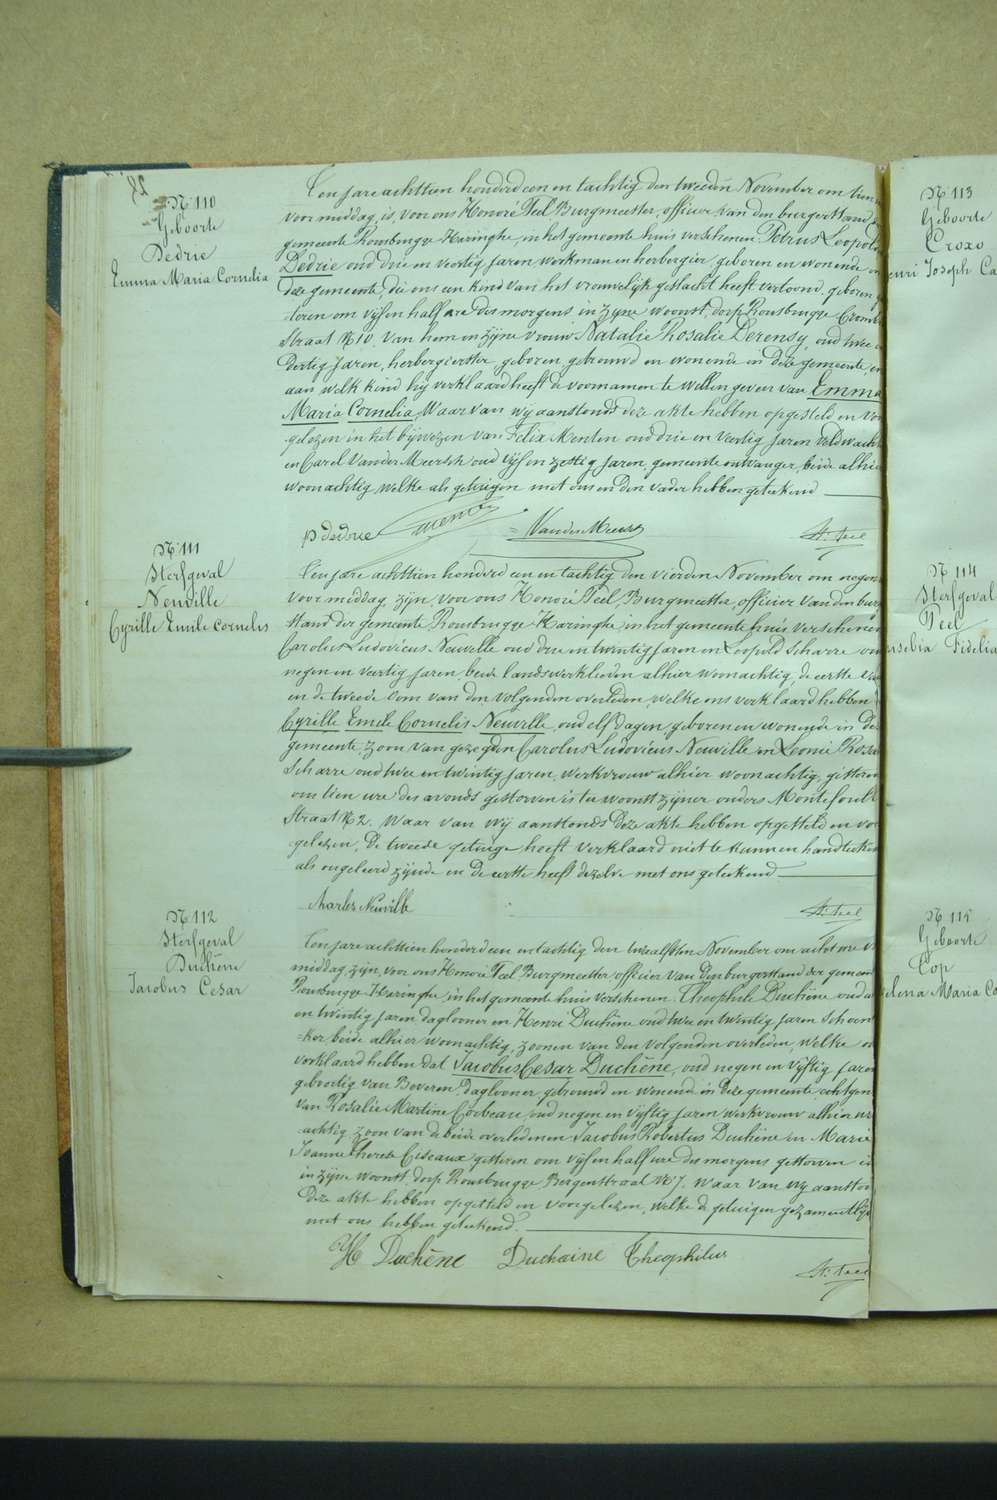 28
N° 110
Geboorte
Dedrie
Emma Maria Cornelia
Ten jare achttien honderd een en tachtig den tweeden November om tien
voor middag is, voor ons Honoré Teel Burgmeester, officier van den burgerstand
gemeente Rousbrugge Haringhe, in het gemeente huis verschenen Petrus Leopold
Dedrie oud drie en veertig jaren, werkman en herbergier, geboren en wonende in
deze gemeente, die ons een kind van het vrouwelijk geslacht heeft vertoond, geboren
teren om vijf en half ure des morgens in zijne woonst, dorp Rousbrugge
Straat N° 10, van hem en zijne vrouw Natalie Rosalie Derensy, oud twee
Dertig jaren, herbergierster, geboren, gehuwd en wonende in deze gemeente, en
aan welk kind hij verklaard heeft de voornamen te willen geven van Emma
Maria Cornelia, Waar van wij aanstonds deze akte hebben opgesteld en voor
gelezen in het bijwezen van Felix Menten oud drie en veertig jaren veldwacht
en Carel Van der Meersch oud vijf en zestig jaren, gemeente ontvanger, beide alhier
woonachtig, welke als getuigen met ons en den vader hebben geteekend
p dedrie Menten VanderMeersch H. Teel
N° 111
Sterfgeval
Neuville
Cyrille Emile Cornelis
Ten jare achttien honderd een en tachtig den vierden November om negen
voor middag, zijn, voor ons Honoré Teel, Burgmeester, officier van den burg
stand der gemeente Rousbrugge Haringhe, in het gemeente huis verschenen
Carolus Ludovicus Neuville oud drie en twintig jaren en Leopold Scharre oud
negen en veertig jaren, beide landswerklieden alhier woonachtig, de eerste
en de tweede oom van den volgenden overleden, welke ons verklaard hebben
Cyrille Emile Cornelis Neuville, oud elf dagen geboren en wonende in de
gemeente, zoon van gezegden Carolus Ludovicus Neuville en Leonie Rosa
Scharre oud twee en twintig jaren, werkvrouw alhier woonachtig, gisteren
om tien ure des avonds gestorven is ter woonst zijner ouders
Straat N° 2. Waar van wij aanstonds deze akte hebben opgesteld en voor
gelezen, De tweede getuige heeft verklaard niet te kunnen handteekenen
als ongeleerd zijnde en de eerste heeft dezelve met ons geteekend
Charles Neuville H. Teel
N° 112
Sterfgeval
Duchêne
Jacobus Cesar
Ten jare achttien honderd een en tachtig den twaalfsten November om acht ure
middag, zijn, voor ons Honoré Teel Burgmeester officier van den burgerstand der gemeente
Rousbrugge Haringhe, in het gemeente huis verschenen Theophile Duchêne oud
en twintig jaren daglooner en Henri Duchêne oud twee en twintig jaren schoen
-ker beide alhier woonachtig, zoonen van den volgenden overleden, welke
verklaard hebben dat Jacobus Cesar Duchêne, oud negen en vijftig jaren
geboortig van Boveren, daglooner, gehuwd en wonende in deze gemeente, echtgen
van Rosalie Martine Corbeau, oud negen en vijftig jaren werkvrouw alhier
-achtig, zoon van de beide overledenen Jacobus Robertus Duchêne en Marie
Joanne Therese Ciseaux gisteren om vijf en half ure des morgens gestorven is
in zijne woonst, dorp Rousbrugge, Bergenstraat N° 7. Waar van wij aanstonds
deze akte hebben opgesteld en voorgelezen, welke de getuigen gezamentlijk
met ons hebben geteekend.
H Duchêne Duchaine Theophilus H. Teel
N° 113
Geboorte
Croxo
enri Joseph Ca
N° 114
Sterfgeval
Teel
usebia Fidelia
N° 115
Geboorte
Cop
elena Maria Co